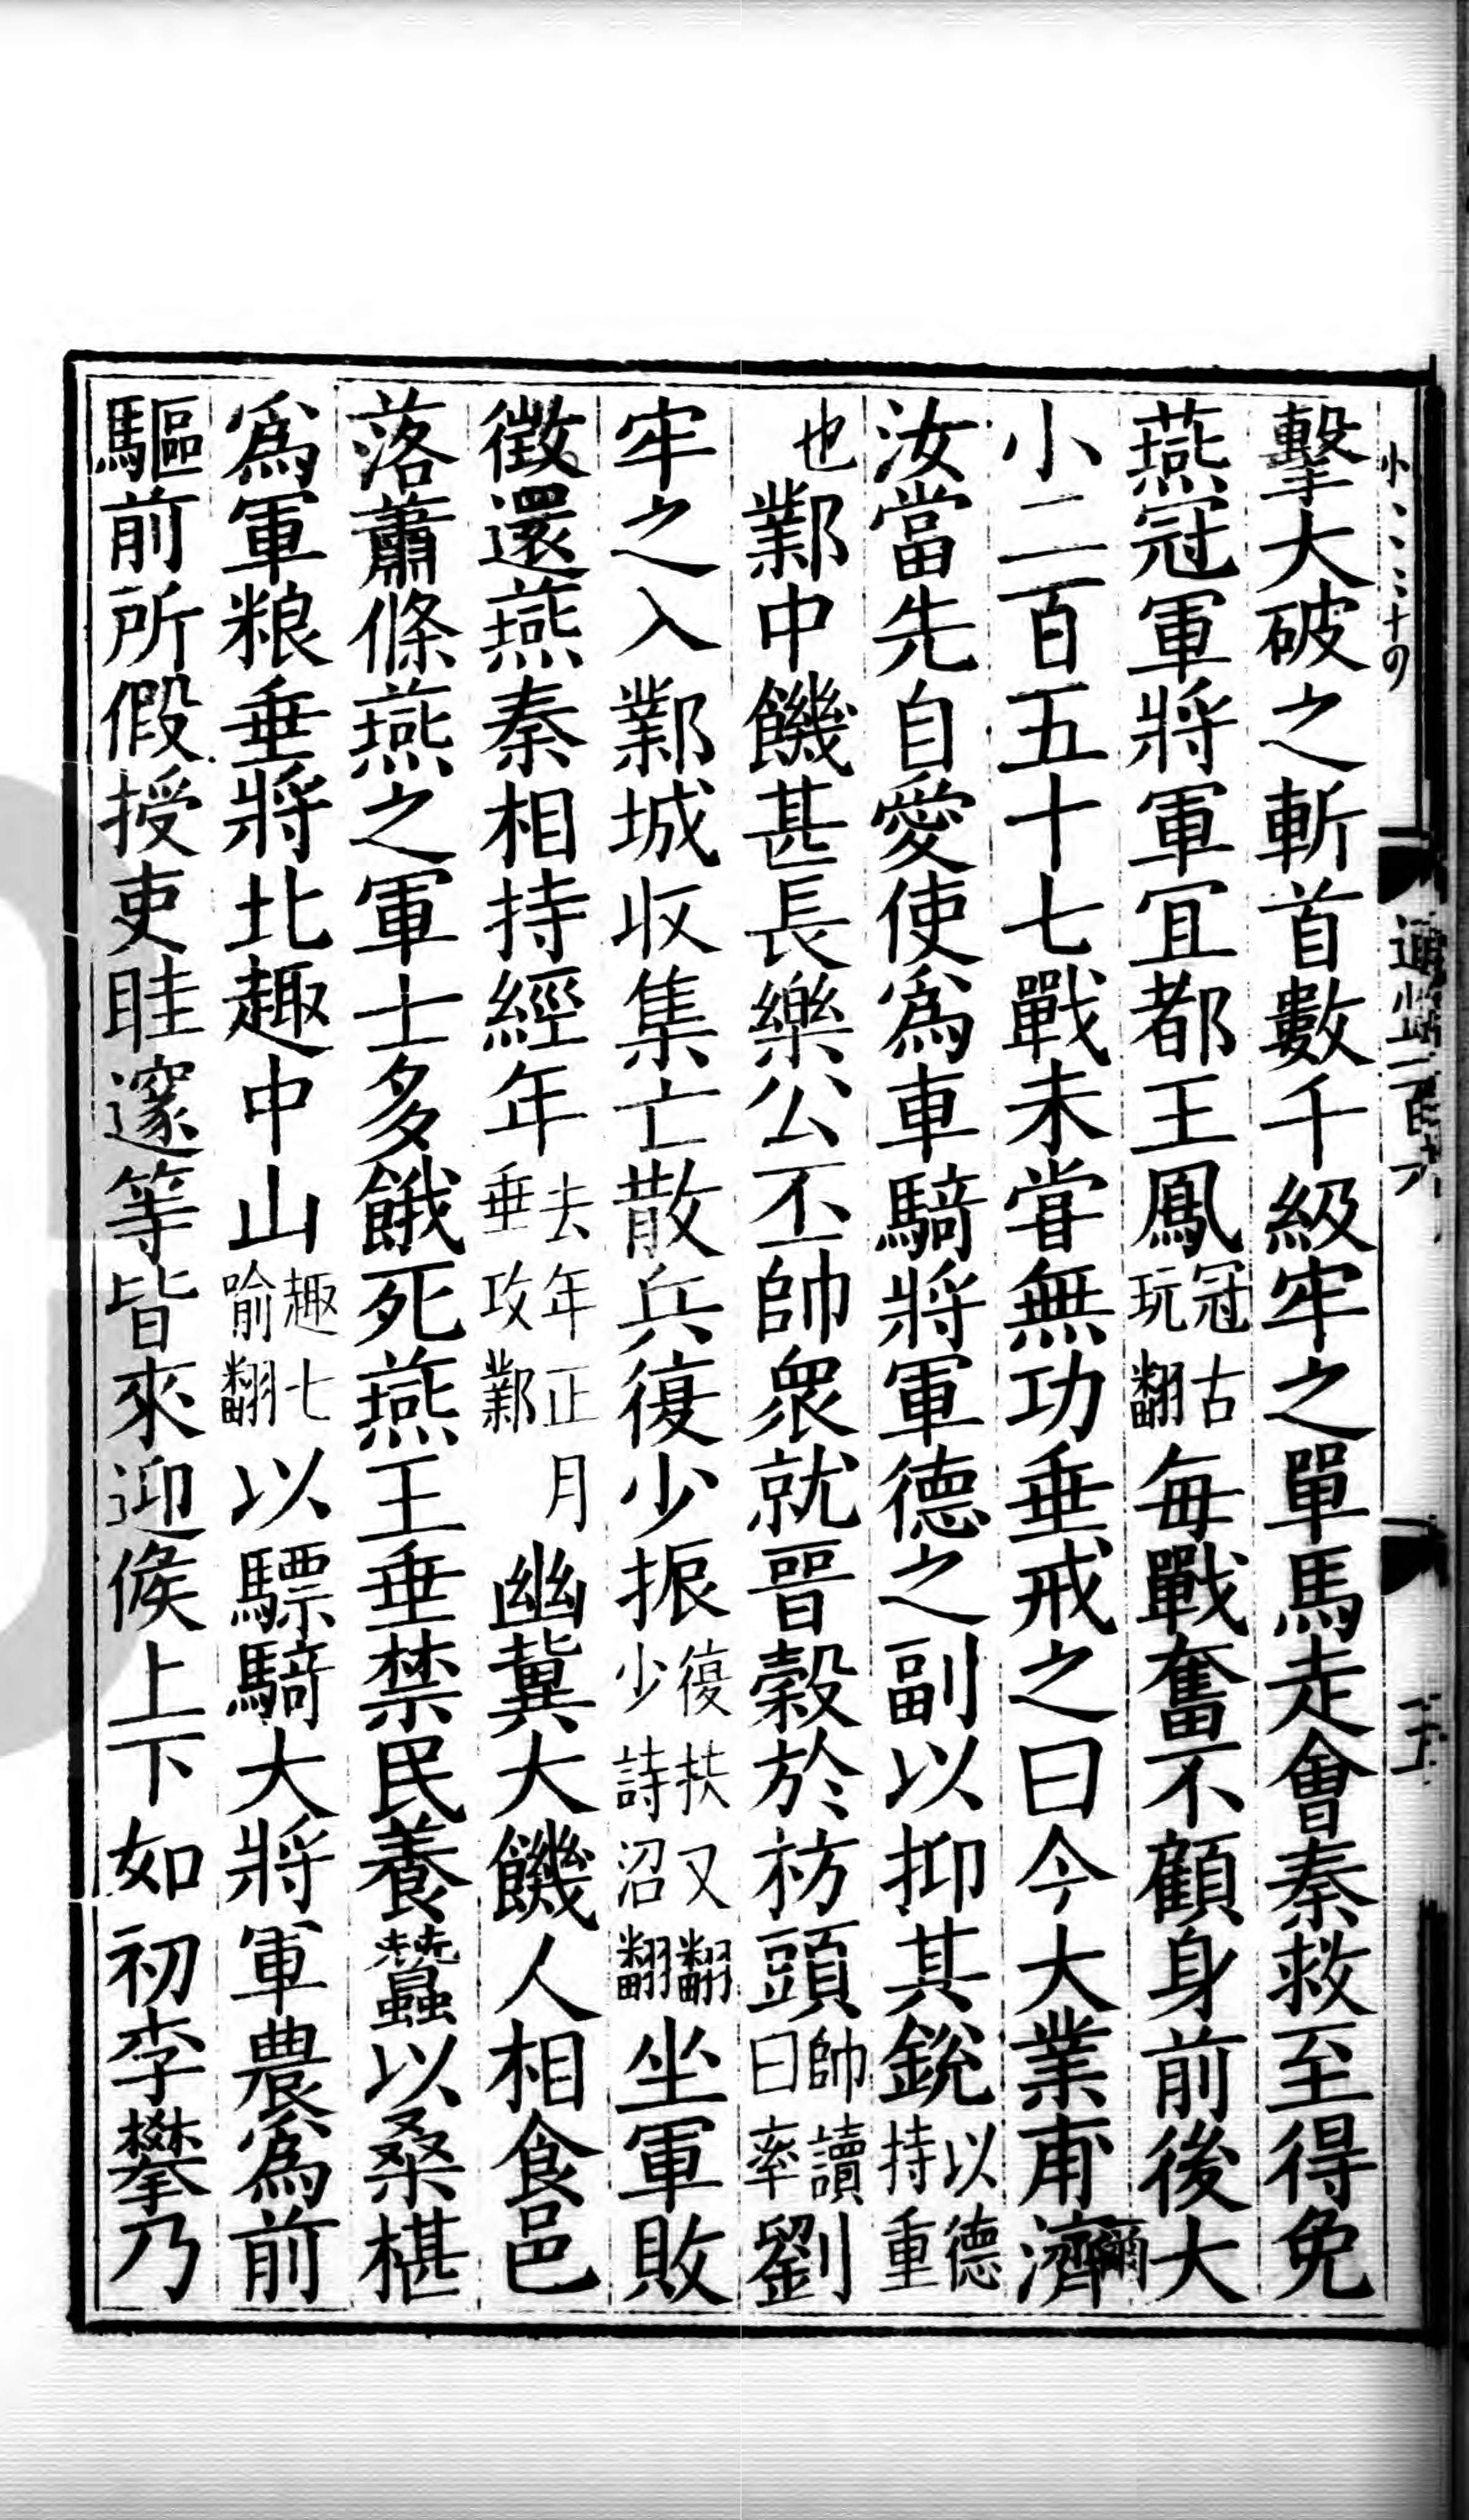 擊大破之斬首數千級牢之單馬走會秦救至得免
燕冠軍將軍宜都王鳳冠古玩翻每戰奮不顧身前後大
小二百五十七戰未甞無功垂戒之曰今大業甫濟
汝當先自愛使爲車騎將軍德之副以抑其銳以德持重
也鄴中饑甚長樂公丕帥衆就晉穀於枋頭帥讀曰率劉
牢之入鄴城收集亡散兵復少振復扶又翻少詩沼翻坐軍敗
徵還燕秦相持經年去年正月垂攻鄴幽冀大饑人相食邑
落蕭條燕之軍士多餓死燕王垂禁民養蠶以桑椹
爲軍粮垂將北趣中山趣七喻翻以驃騎大將軍農爲前
驅前所假授吏眭邃等皆來迎候上下如初李攀乃